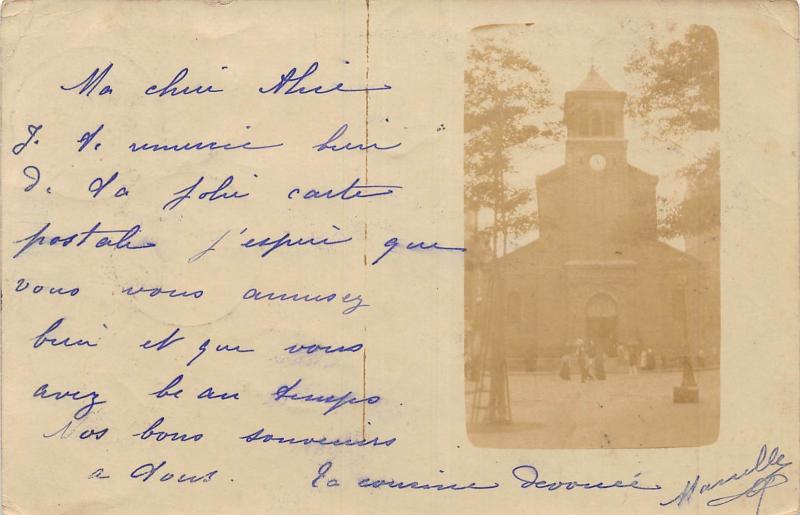 Ma chère Alice
Je te remercie bien
de ta jolie carte
postale j'espère que
vous vous amusez
bien et que vous
avez beau temps.
Nos bons souvenirs
a tous. Ta cousine devouée
Marcelle